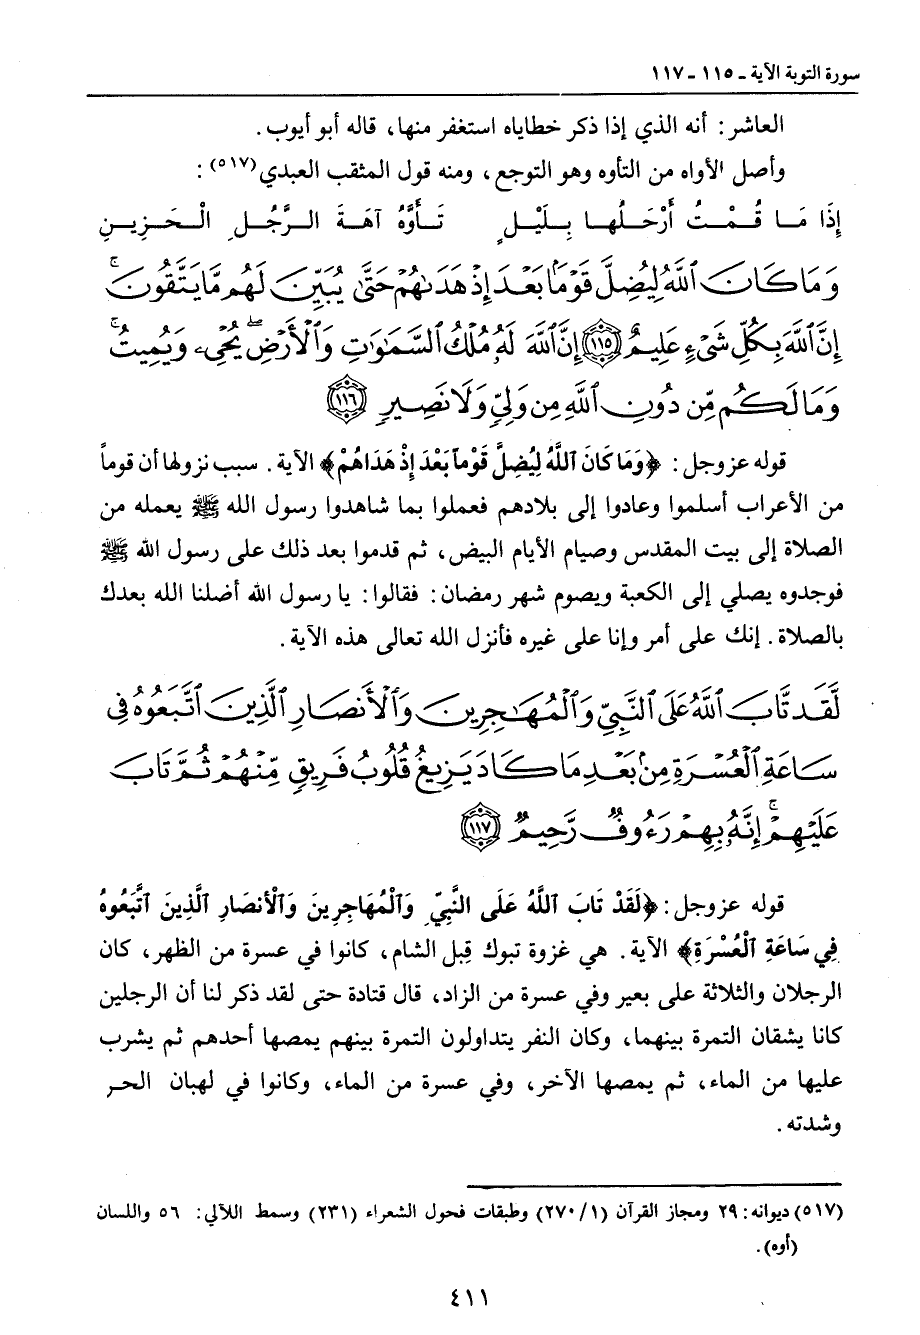 سورة التوبة الآية ـ ١١٥ ـ ١١٧
العاشر: أنه الذي إذا ذكر خطاياه استغفر منها، قاله أبو أيوب.
وأصل الأواه من التأوه وهو التوجع، ومنه قول المثقب العبدي(٥١٧):
إِذَا مَا قُمْتُ أَرْحَلُهَا بِلَيْلٍ تَأَوَّهُ آهَةَ الرَّجُلِ الْحَزِينِ
وَمَا كَانَ ٱللَّهُ لِيُضِلَّ قَوْمًۢا بَعْدَ إِذْ هَدَىٰهُمْ حَتَّىٰ يُبَيِّنَ لَهُم مَّا يَتَّقُونَ ۚ
إِنَّ ٱللَّهَ بِكُلِّ شَىْءٍ عَلِيمٌ ١١٥ إِنَّ ٱللَّهَ لَهُۥ مُلْكُ ٱلسَّمَٰوَٰتِ وَٱلْأَرْضِ ۖ يُحْىِۦ وَيُمِيتُ ۚ
وَمَا لَكُم مِّن دُونِ ٱللَّهِ مِن وَلِىٍّ وَلَا نَصِيرٍ ١١٦
قوله عز وجل: ﴿وَمَا كَانَ ٱللَّهُ لِيُضِلَّ قَوْماً بَعْدَ إِذْ هَدَاهُمْ﴾ الآية. سبب نزولها أن قوماً
من الأعراب أسلموا وعادوا إلى بلادهم فعملوا بما شاهدوا رسول الله ﷺ يعمله من
الصلاة إلى بيت المقدس وصيام الأيام البيض، ثم قدموا بعد ذلك على رسول الله ﷺ
فوجدوه يصلي إلى الكعبة ويصوم شهر رمضان: فقالوا: يا رسول الله أضلنا الله بعدك
بالصلاة. إنك على أمر وإنا على غيره فأنزل الله تعالى هذه الآية.
لَّقَد تَّابَ ٱللَّهُ عَلَى ٱلنَّبِىِّ وَٱلْمُهَٰجِرِينَ وَٱلْأَنصَارِ ٱلَّذِينَ ٱتَّبَعُوهُ فِى
سَاعَةِ ٱلْعُسْرَةِ مِنۢ بَعْدِ مَا كَادَ يَزِيغُ قُلُوبُ فَرِيقٍ مِّنْهُمْ ثُمَّ تَابَ
عَلَيْهِمْ ۚ إِنَّهُۥ بِهِمْ رَءُوفٌ رَّحِيمٌ ١١٧
قوله عز وجل: ﴿لَقَدْ تَابَ ٱللَّهُ عَلَى النَّبِيِّ وَالْمُهَاجِرِينَ وَالْأَنصَارِ ٱلَّذِينَ ٱتَّبَعُوهُ
فِي سَاعَةِ ٱلْعُسْرَةِ﴾ الآية. هي غزوة تبوك قِبل الشام، كانوا في عسرة من الظهر، كان
الرجلان والثلاثة على بعير وفي عسرة من الزاد، قال قتادة حتى لقد ذكر لنا أن الرجلين
كانا يشقان التمرة بينهما، وكان النفر يتداولون التمرة بينهم يمصها أحدهم ثم يشرب
عليها من الماء، ثم يمصها الآخر، وفي عسرة من الماء، وكانوا في لهبان الحر
وشدته.
(٥١٧) ديوانه: ٢٩ ومجاز القرآن (٢٧٠/١) وطبقات فحول الشعراء (٢٣١) وسمط اللآلي: ٥٦ واللسان
(أوه).
٤١١